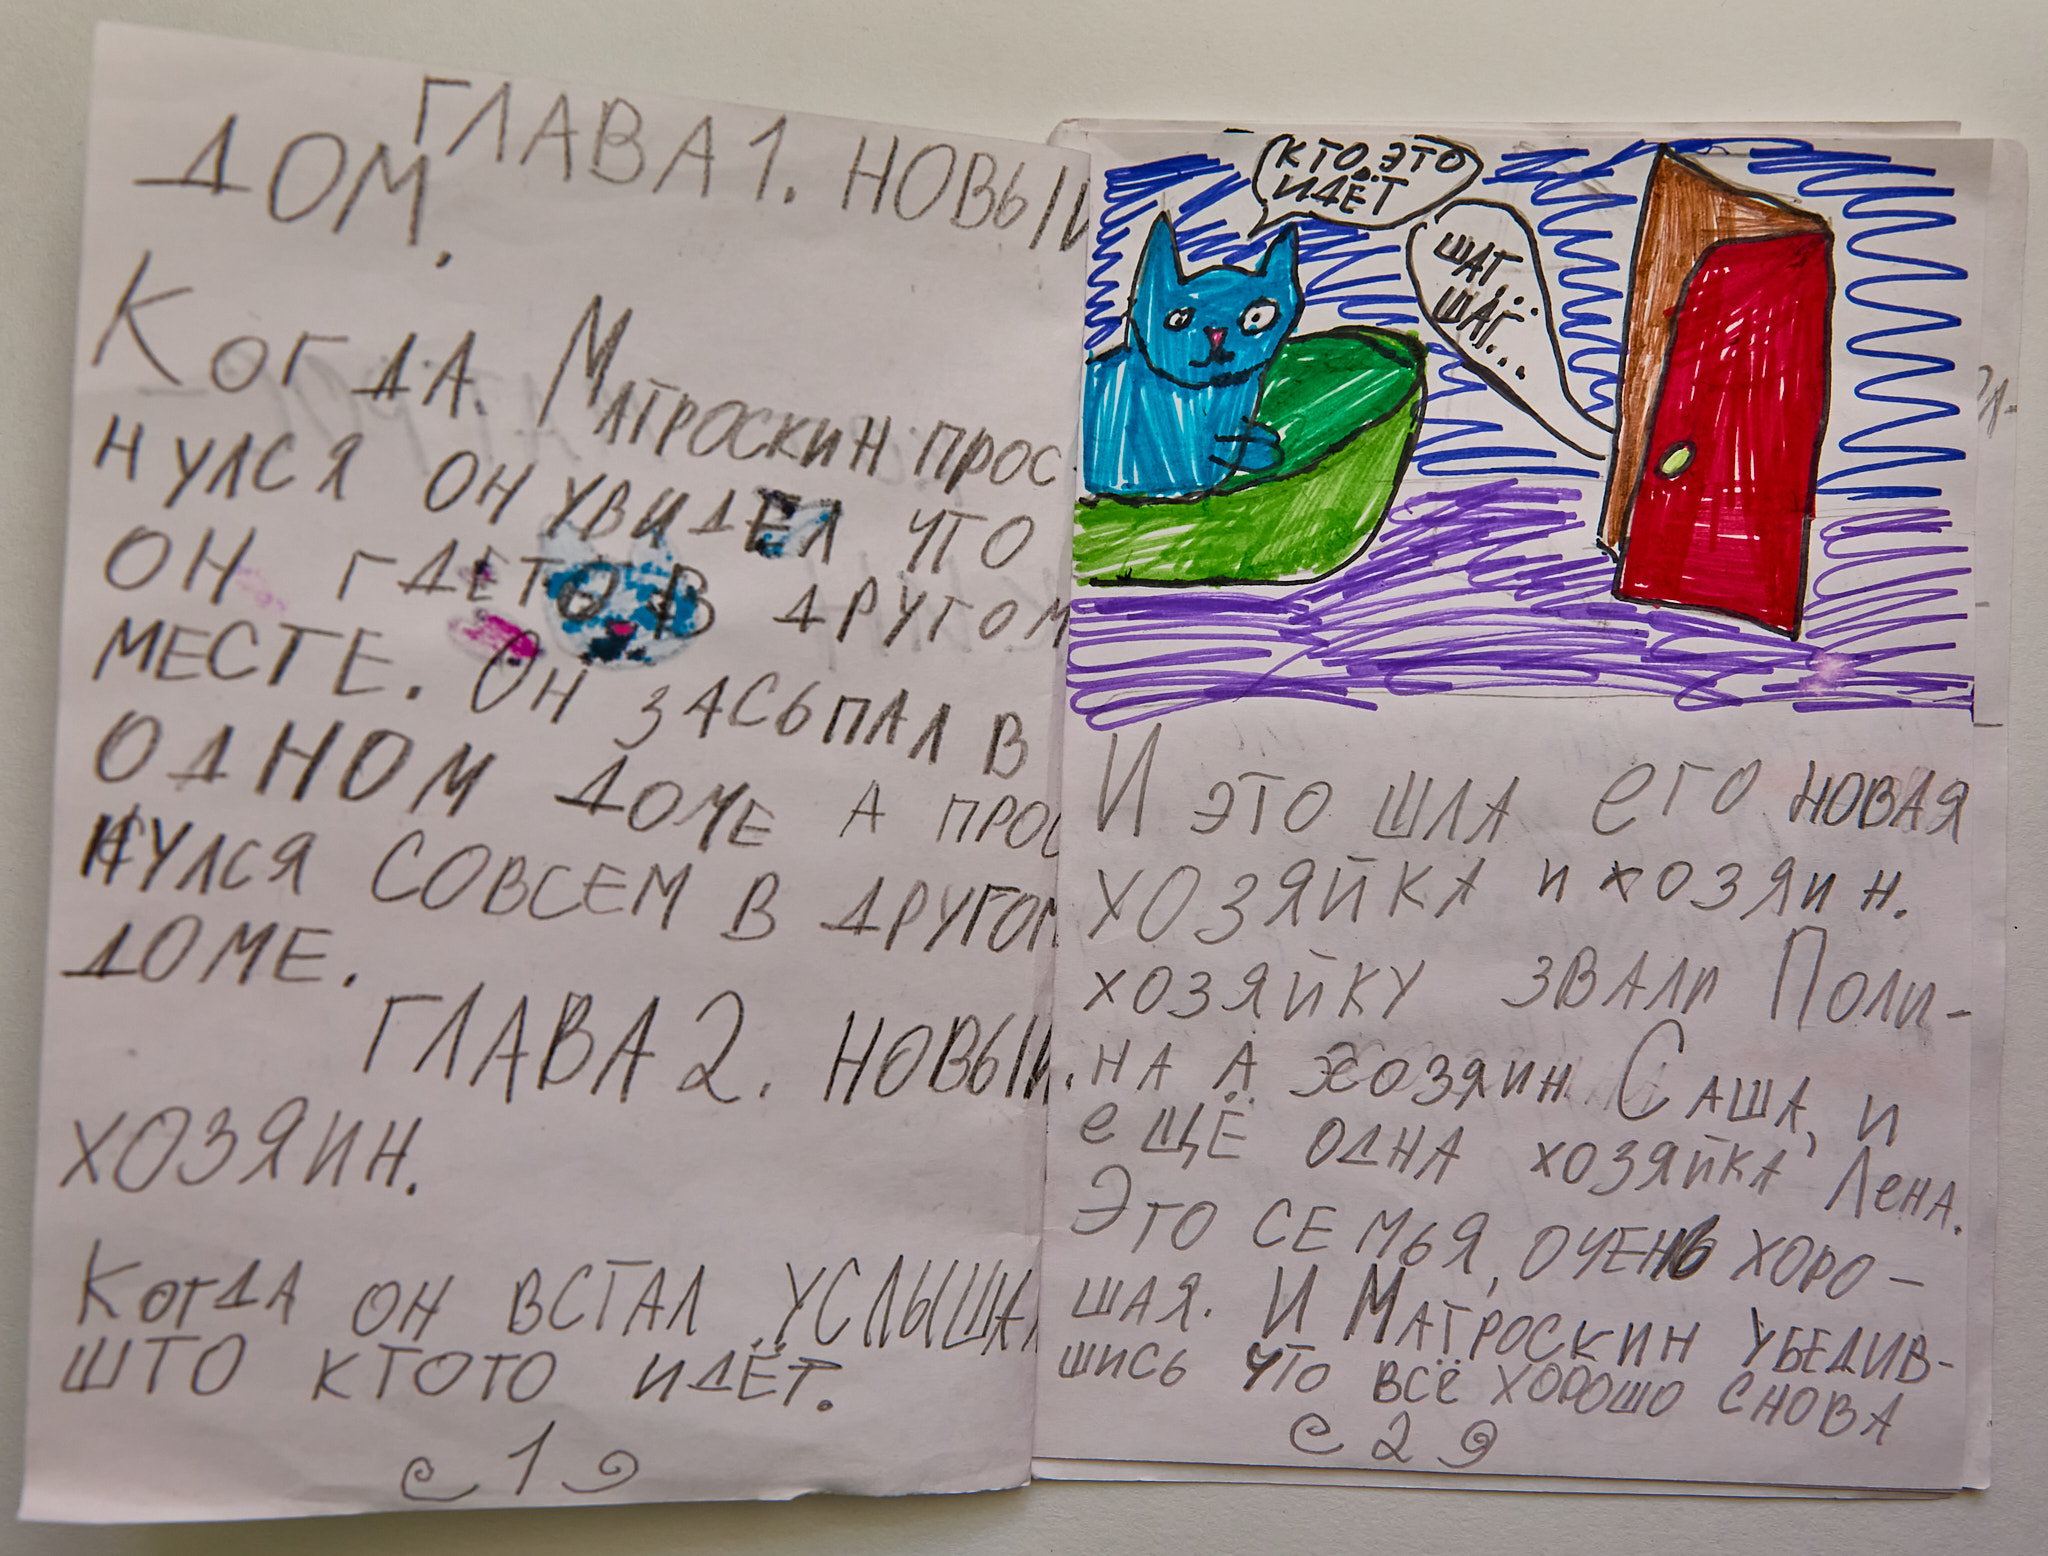 ГЛАВА 1. НОВЫЙ
ДОМ.
КОГДА МАТРОСКИН ПРОС-
НУЛСЯ ОН УВИДЕЛ ЧТО
ОН ГДЕТО В ДРУГОМ
МЕСТЕ. ОН ЗАСЬПАЛ В
ОДНОМ ДОМЕ А ПРОС
НУЛСЯ СОВСЕМ В ДРУГОМ
ДОМЕ.
ГЛАВА 2. НОВЫЙ
ХОЗЯИН.
КОГДА ОН ВСТАЛ УСЛЫШАЛ
ШТО КТОТО ИДЁТ.
1
КТО ЭТО
ИДЁТ
ШАГ..
ШАГ...
И ЭТО ШЛА ЕГО НОВАЯ
ХОЗЯЙКА И ХОЗЯИН.
ХОЗЯЙКУ ЗВАЛИ ПОЛИ-
НА А ХОЗЯИН САША, И
ЕЩЁ ОДНА ХОЗЯЙКА ЛЕНА.
ЭТО СЕМЬЯ, ОЧЕНЬ ХОРО-
ШАЯ. И МАТРОСКИН УБЕДИВ-
ШИСЬ ЧТО ВСЁ ХОРОШО СНОВА
2